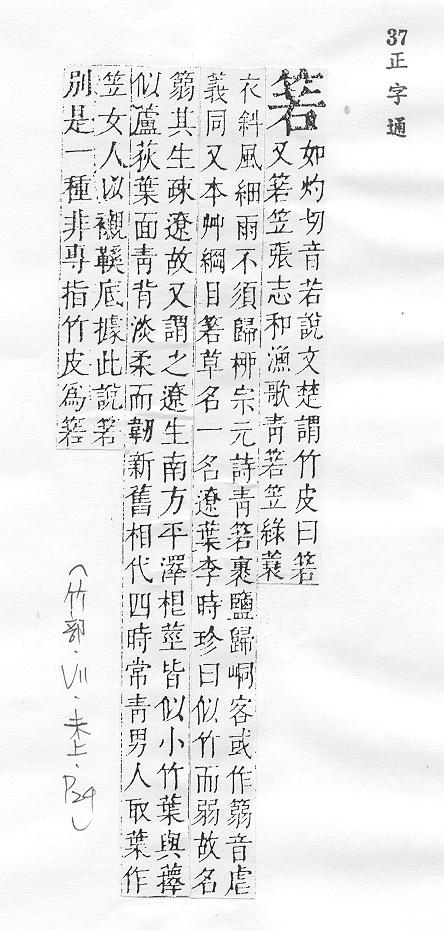 37正字通
箬
如灼切音若說文楚謂竹皮曰箬
又箬笠張志和漁歌靑箬笠綠蓑
衣斜風細雨不須歸栁宗元詩靑箬裹鹽歸峒客或作篛音虐
義同又本艸綱目箬草名一名遼葉李時珍曰似竹而弱故名
篛其生疎遼故又謂之遼生南方平澤根莖皆似小竹葉與籜
似蘆荻葉面靑背淡柔而韌新舊相代四時常靑男人取葉作
笠女人以襯鞵底據此說箬
別是一種非專指竹皮爲箬
(竹部·VII·未上·P24)